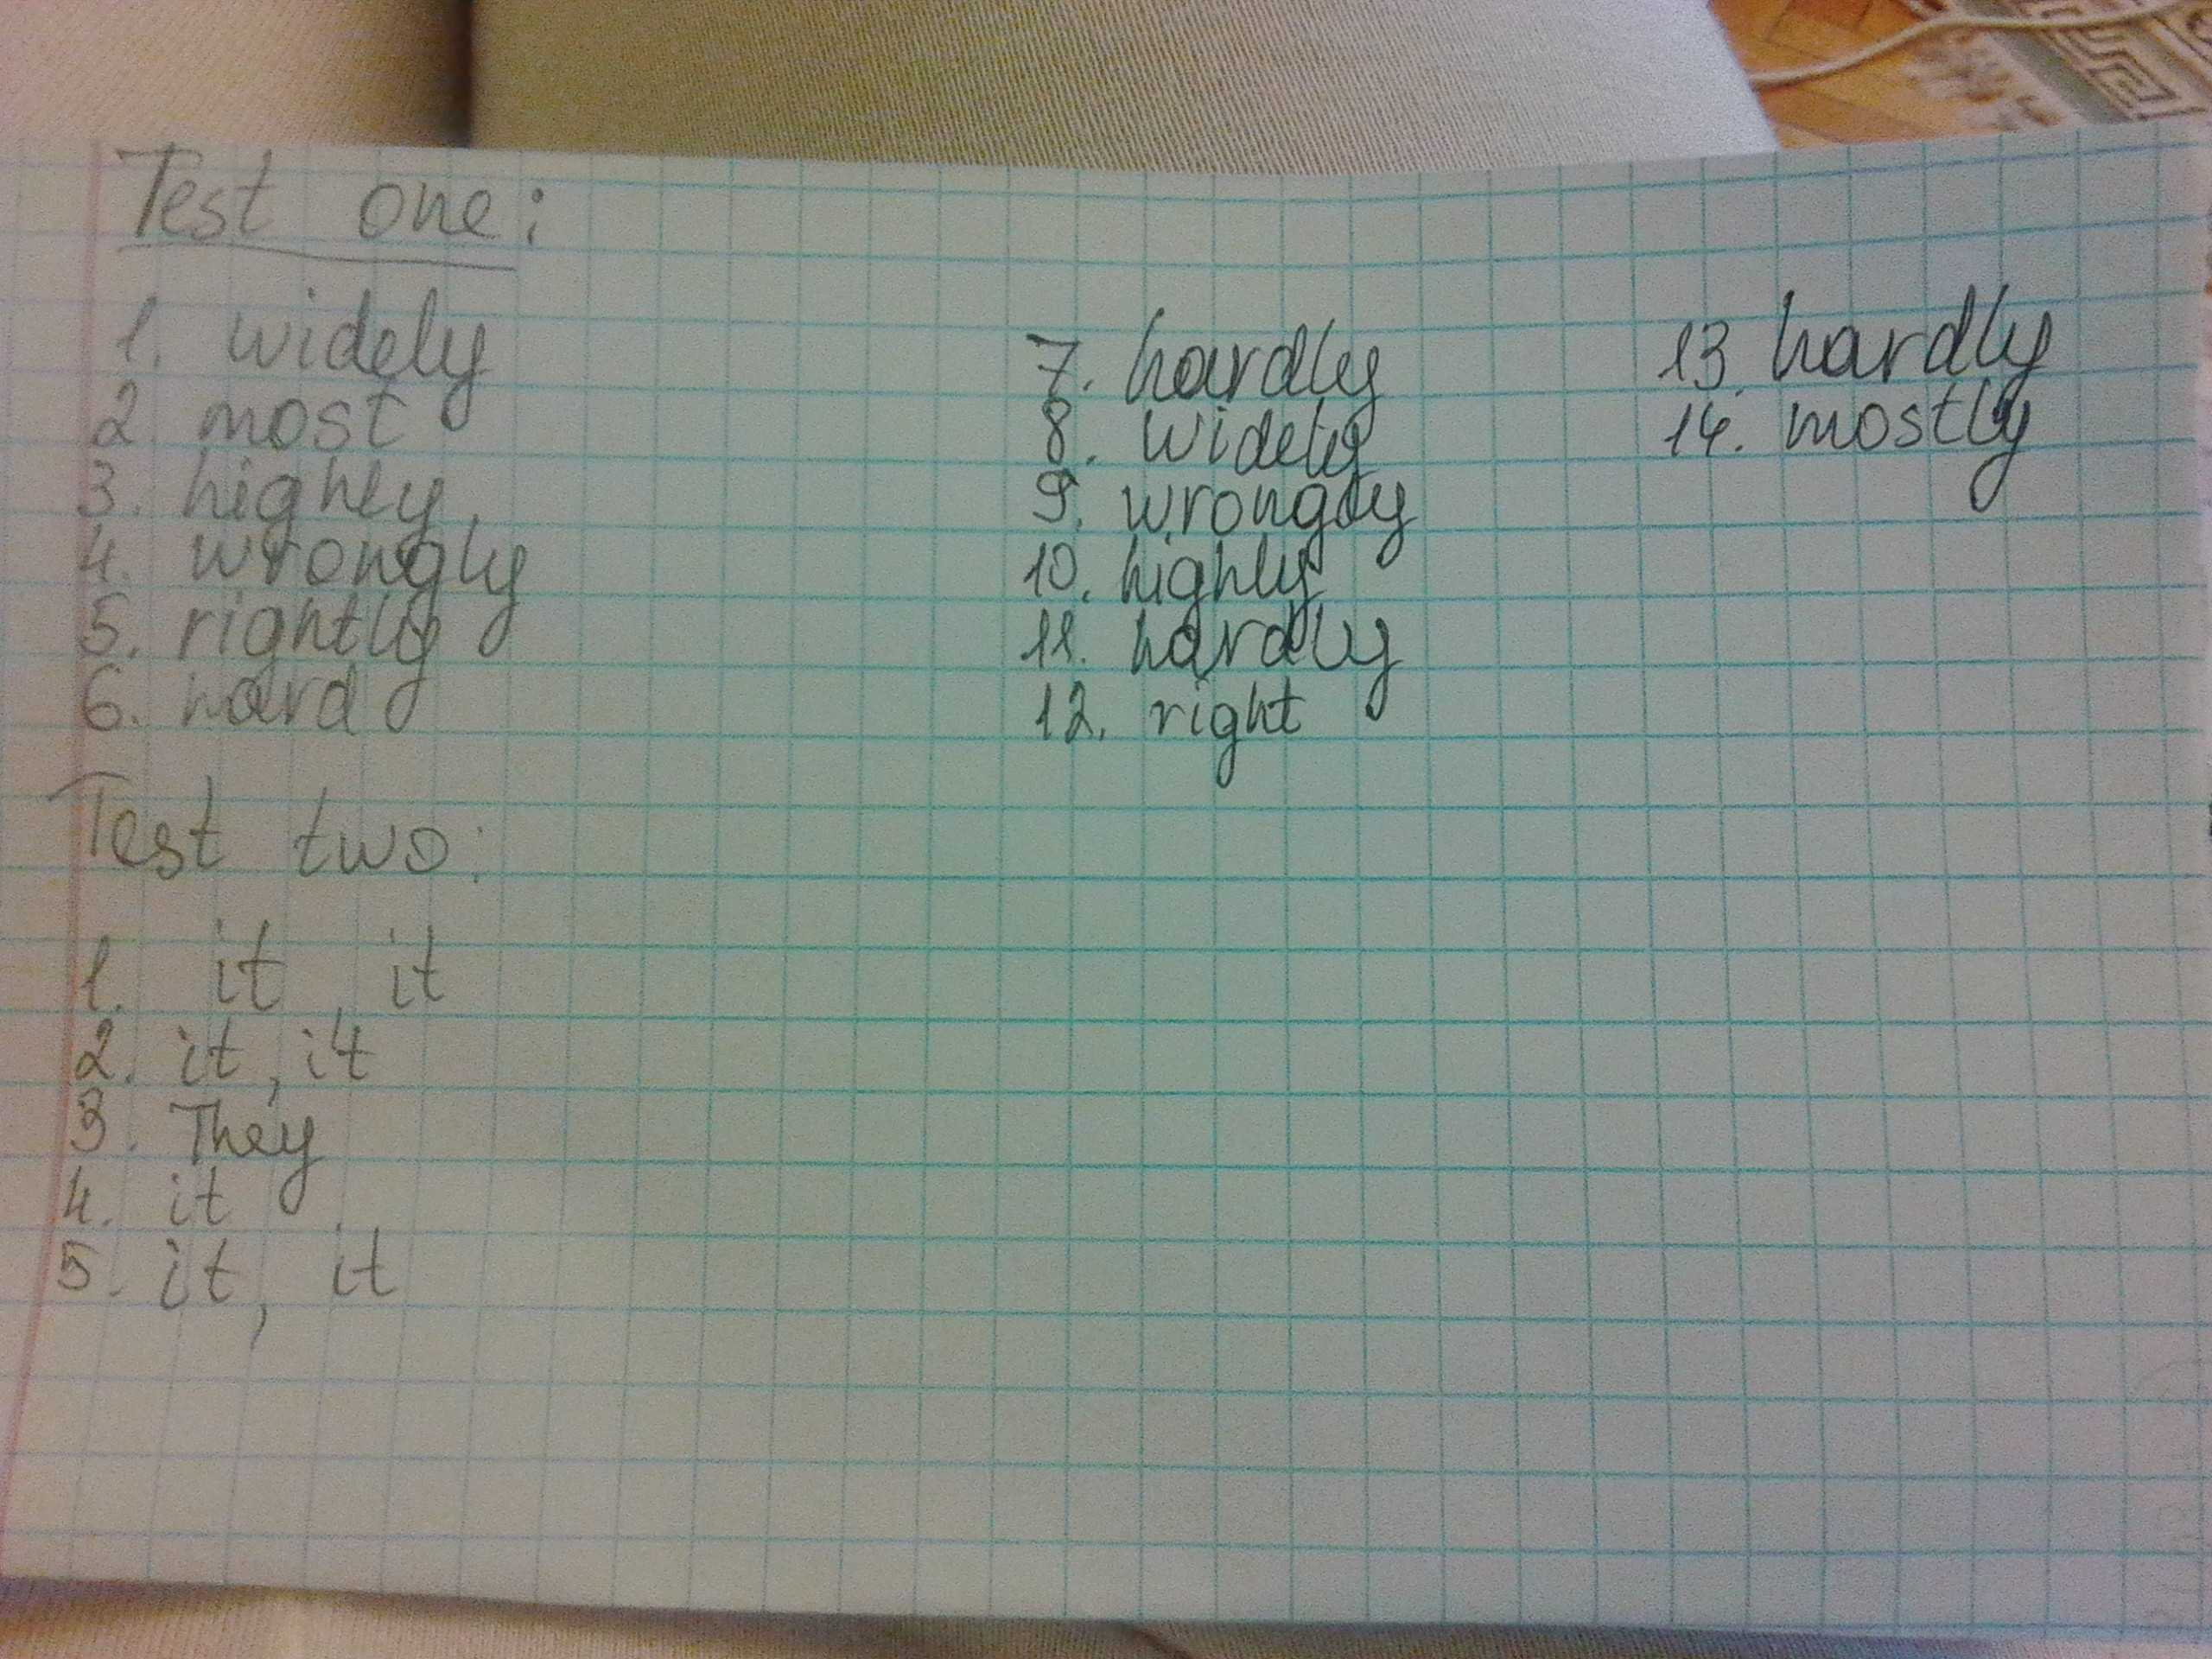 Test one:
1. widely
2 most
3. highly
4. wrongly
5. rightly
6. hard
7. hardly
8. widely
9. wrongly
10. highly
11. hardly
12. right
13. hardly
14. mostly
Test two:
1. it, it
2. it, it
3. They
4. it
5. it, it